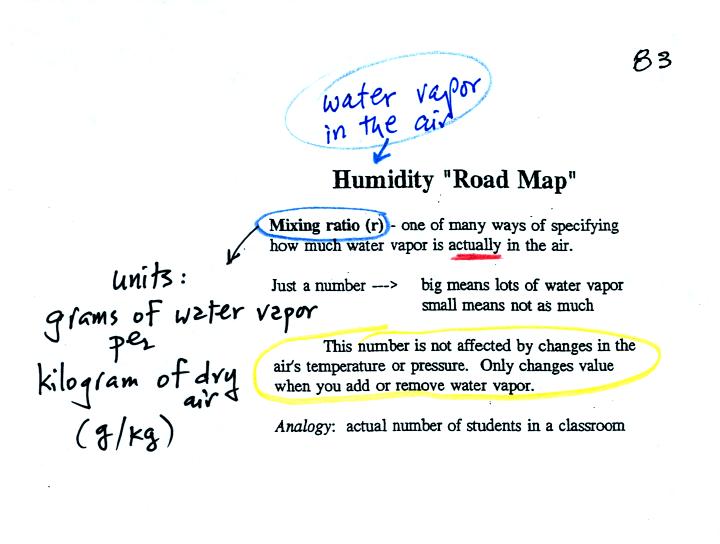 83
water vapor
in the air
Humidity "Road Map"
Mixing ratio (r) - one of many ways of specifying
how much water vapor is actually in the air.
units:
grams of water vapor
per
kilogram of dry
air
(g/kg)
Just a number ---> big means lots of water vapor
small means not as much
This number is not affected by changes in the
air's temperature or pressure. Only changes value
when you add or remove water vapor.
Analogy: actual number of students in a classroom